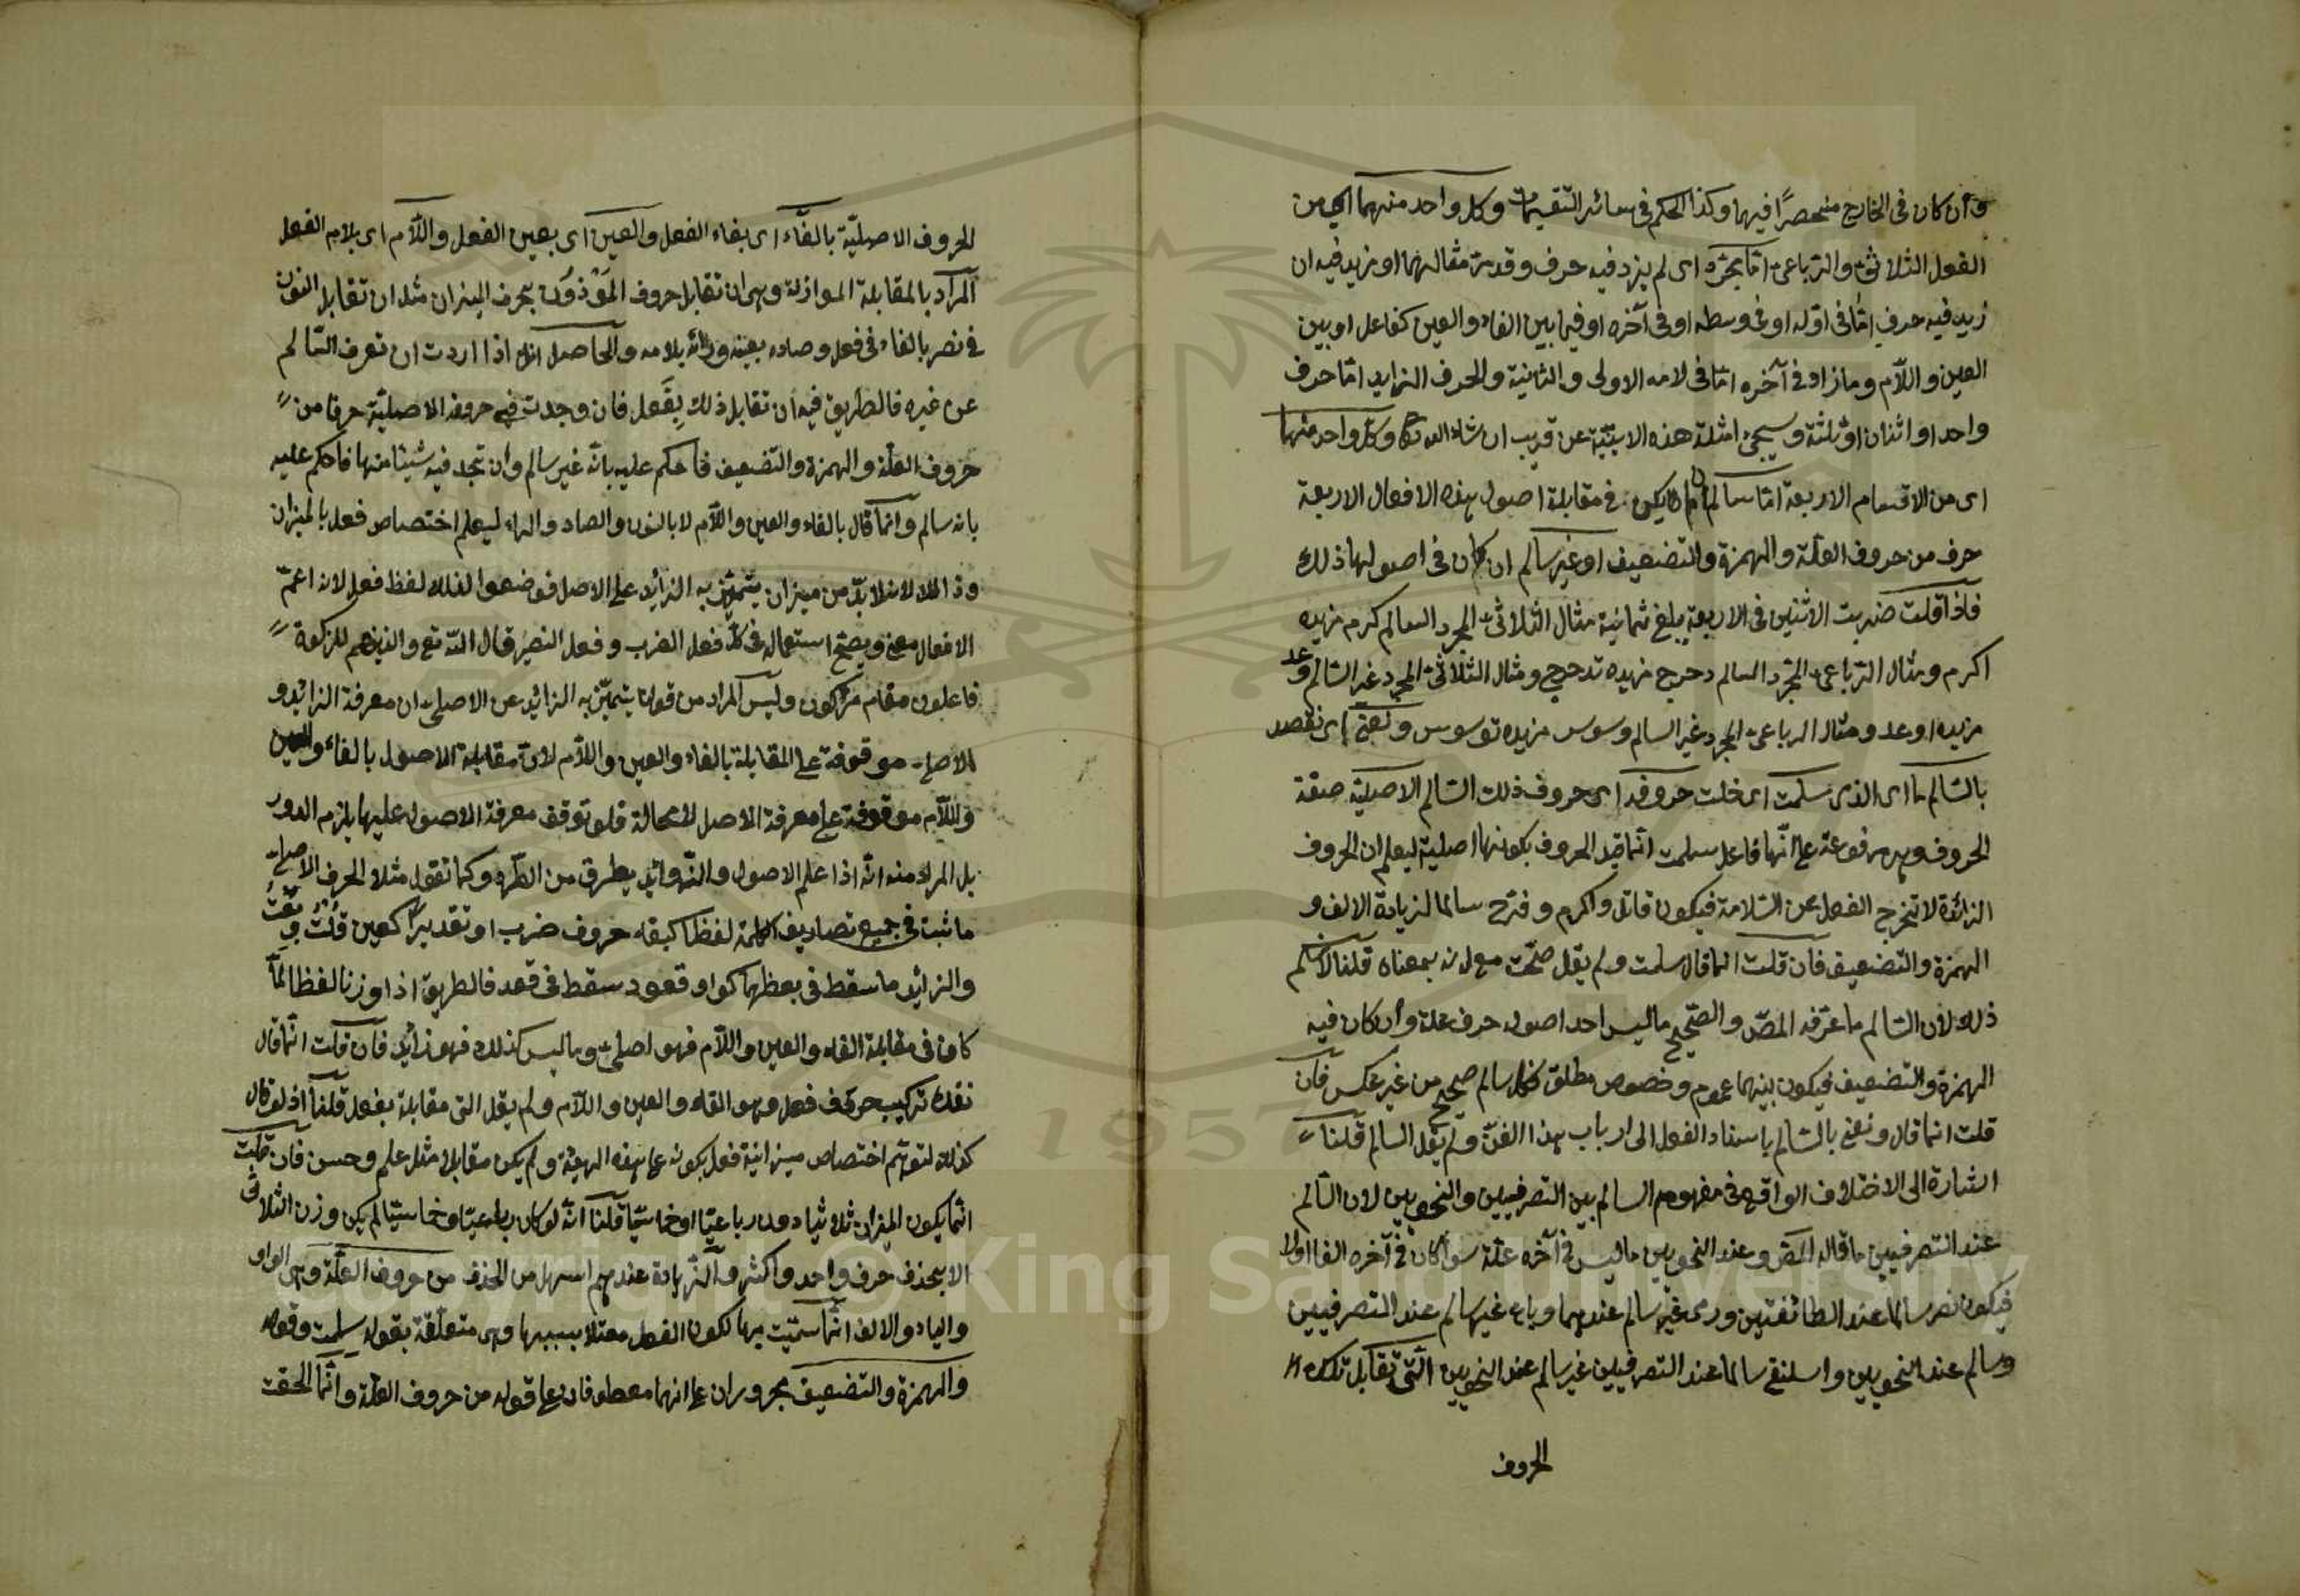 وان كان فى الخارج منحصرًا فيهما وكذا الحكم فى سائر التقسيمات وكل واحد منهما اى من
الفعل الثلاثىّ والرباعىّ امّا مجرّد اى لم يزد فيه حرف وقد مرّ مثالهما او مزيد فيه ان
زيد فيه حرف امّا فى اوّله او فى وسطه او فى آخره او فيما بين الفاء والعين كفاعل او بين
العين واللاّم وما زاد فى آخره امّا فى لامه الاولى والثانية والحرف الزايد امّا حرف
واحد او اثنان او ثلثة وسيجئ امثلة هذه الابنيّة عن قريب ان شاء الله تعالى وكل واحد منها
اى من الاقسام الاربعة امّا سالم ان لم يكن فى مقابلة اصول هذه الافعال الاربعة
حرف من حروف العلّة والهمزة والتضعيف او غير سالم ان كان فى اصولها ذلك
فاذا قلت ضربت الاثنين فى الاربعة يبلغ ثمانية مثال الثلاثىّ المجرد السالم كرم مزيده
اكرم ومثال الرباعىّ المجرّد السالم دحرج مزيده تدحرج ومثال الثلاثىّ المجرد غير السّالم وعد
مزيده اوعد ومثال الرباعىّ المجرد غير السالم وسوس مزيده توسوس ونعنى اى نقصد
بالسّالم ما اى الذى سلمت اى خلت حروفه اى حروف ذلك السّالم الاصليّة صفة
الحروف وهى مرفوعة على انّها فاعل سلمت انّما قيد الحروف بكونها اصلية ليعلم ان الحروف
الزائدة لا تخرج الفعل عن السّلامة فيكون قاتل واكرم وفرّح سالما لزيادة الالف و
الهمزة والتضعيف فان قلت انما قال سلمت ولم يقل صحّت مع انه بمعناه قلنا لا نسلّم
ذلك لان السّالم ما عرّفه المصّ والصّحيح ما ليس احد اصوله حرف علة وان كان فيه
الهمزة والتضعيف فيكون بينهما عموم وخصوص مطلق فكل سالم صحيح من غير عكس فان
قلت انما قال ونعنى بالسّالم باسناد الفعل الى ارباب هذا الفنّ ولم يقل السالم قلنا
اشارة الى الاختلاف الواقع فى مفهوم السالم بين التصرفيين والنحويين لان السّالم
عند التصرفيين ما قاله المصّ وعند النحويين ما ليس فى آخره علّة سواء كان فى آخره الفا اولا
فيكون نصر سالما عند الطائفتين ورمى غير سالم عندهما وباع غير سالم عند التصرفيين
وسالم عند النحويين واسلنقى سالما عند التصرفيين غير سالم عند النحويين الّتى تقابل تلك
الحروف
الحروف الاصليّة بالفّاء اى بفاء الفعل والعين اى بعين الفعل واللاّم اى بلام الفعل
المراد بالمقابلة الموازنة وهى ان تقابل حروف المَوْزون بحرف الميزان مثل ان تقابل النون
فى نصر بالفاء فى فعل وصاده بعينه ورائه بلامه والحاصل انك اذا اردت ان تعرف السّالم
عن غيره فالطريق فيه ان تقابل ذلك بِفَعل فان وجدت فى حروفه الاصليّة حرفا من
حروف العلّة والهمزة والتضعيف فاحكم عليه بانّه غير سالم وان تجد فيه شيئا منها فاحكم عليه
بانه سالم وانّما قال بالفاء والعين واللاّم لا بالنون والصاد والراء ليعلم اختصاص فعل بالميزان
وذا لانه لا بدّ من ميزان يتميّز به الزائد على الاصل فوضعوا لذلك لفظ فعل لانه اعمّ
الافعال معنى ويصحّ استعماله فى كلّ فعل الضرب وفعل النصر قال الله تع والذين هم للزكوة
فاعلون مقام مزكّون وليس المراد من قولنا يتميّز به الزائد عن الاصلىّ ان معرفة الزائد و
الاصلىّ موقوفة على المقابلة بالفاء والعين واللاّم لانّ مقابلة الاصول بالفاء والعين
واللاّم موقوفة على معرفة الاصل لا محالة فلو توقف معرفة الاصول عليها يلزم الدور
بل المراد منه انّه اذا علم الاصول والزوائد بطرق من الطّرق وكما تقول مثلا الحرف الاصلىّ
ما ثبت فى جميع تصاريف الكلمة لفظا كبقاء حروف ضرب او تقديرًا كعين قلت وبعت
والزائد ما سقط فى بعظها كواو قعود سقط فى قعد فالطريق اذا وزنا لفظا لمّا
كان فى مقابلة الفاء والعين واللاّم فهو اصلىّ وما ليس كذلك فهو زائد فان قلت انّما قال
تركيب حروف فعل وهو الفاء والعين واللاّم ولم يقل التى مقابلة بفعل قلنا اذ لو قال
كذلك لتوهّم اختصاص ميزانية فعل بكونه على هذه الهيئة ولم يكن مقابلا مثل علم وحسن فان قلت
انّما يكون الميزان ثلاثيا دون رباعيّا او خماسيّا قلنا انّه لو كان رباعيّا وخماسيّا لم يكن وزن الثلاثى
الا بحذف حرف واحد واكثر والزيادة عندهم اسهل من الحذف من حروف العلّة وهى الواو
والياء والالف انّما سمّيت بها لكون الفعل معتلا بسببها وهى متعلّقة بقوله سلمت وقوله
والهمزة والتضعيف مجروران على انهما معطوفان على قوله من حروف العلّة وانّما الحقت
Copyright © King Saud University
1957